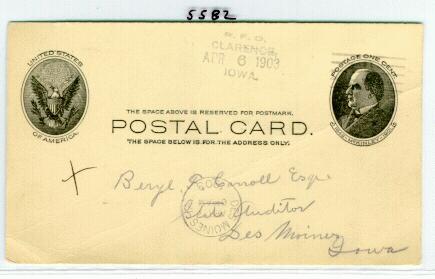 5582
R.F.D.
CLARENCE,
APR 6 1903
IOWA.
UNITED STATES
OF AMERICA.
POSTAGE ONE CENT
1843. McKINLEY. 1901.
THE SPACE ABOVE IS RESERVED FOR POSTMARK.
POSTAL CARD.
THE SPACE BELOW IS FOR THE ADDRESS ONLY.
X
Beryl F. Carroll Esqr
State Auditor
DES MOINES
Des Moines
Iowa